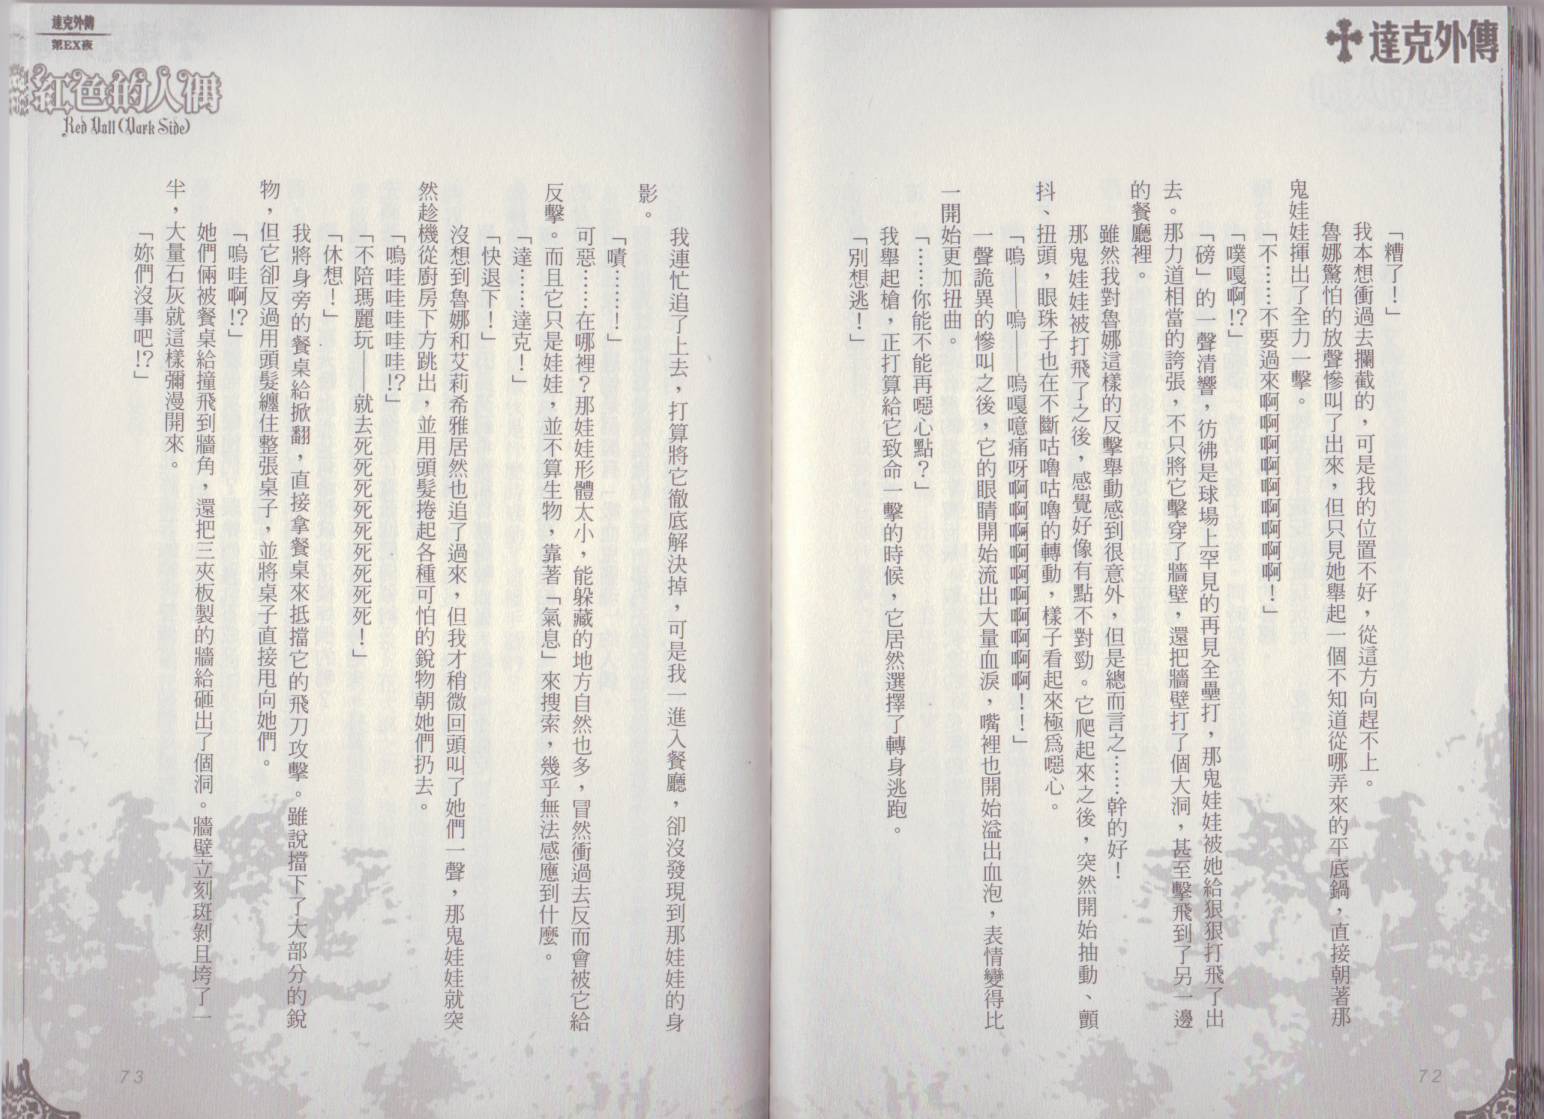 達克外傳
「糟了！」
我本想衝過去攔截的，可是我的位置不好，從這方向趕不上。
魯娜驚怕的放聲慘叫了出來，但只見她舉起一個不知道從哪弄來的平底鍋，直接朝著那
鬼娃娃揮出了全力一擊。
「不……不要過來啊啊啊啊啊啊啊啊啊！」
「噗嘎啊!?」
「磅」的一聲清響，彷彿是球場上罕見的再見全壘打，那鬼娃娃被她給狠狠打飛了出
去。那力道相當的誇張，不只將它擊穿了牆壁，還把牆壁打了個大洞，甚至擊飛到了另一邊
的餐廳裡。
雖然我對魯娜這樣的反擊舉動感到很意外，但是總而言之……幹的好！
那鬼娃娃被打飛了之後，感覺好像有點不對勁。它爬起來之後，突然開始抽動、顫
抖、扭頭，眼珠子也在不斷咕嚕咕嚕的轉動，樣子看起來極為噁心。
「嗚——嗚——嗚嘎噫痛呀啊啊啊啊啊啊啊啊啊！！」
一聲詭異的慘叫之後，它的眼睛開始流出大量血淚，嘴裡也開始溢出血泡，表情變得比
一開始更加扭曲。
「……你能不能再噁心點？」
我舉起槍，正打算給它致命一擊的時候，它居然選擇了轉身逃跑。
「別想逃！」
72
達克外傳
第EX夜
紅色的人偶
Red Doll (Dark Side)
我連忙追了上去，打算將它徹底解決掉，可是我一進入餐廳，卻沒發現到那娃娃的身
影。
「嘖……！」
可惡……在哪裡？那娃娃形體太小，能躲藏的地方自然也多，冒然衝過去反而會被它給
反擊。而且它只是娃娃，並不算生物，靠著「氣息」來搜索，幾乎無法感應到什麼。
「達……達克！」
「快退下！」
沒想到魯娜和艾莉希雅居然也追了過來，但我才稍微回頭叫了她們一聲，那鬼娃娃就突
然趁機從廚房下方跳出，並用頭髮捲起各種可怕的銳物朝她們扔去。
「嗚哇哇哇哇哇!?」
「不陪瑪麗玩——就去死死死死死死死死死！」
「休想！」
我將身旁的餐桌給掀翻，直接拿餐桌來抵擋它的飛刀攻擊。雖說擋下了大部分的銳
物，但它卻反過用頭髮纏住整張桌子，並將桌子直接甩向她們。
「嗚哇啊!?」
她們倆被餐桌給撞飛到牆角，還把三夾板製的牆給砸出了個洞。牆壁立刻斑剝且垮了一
半，大量石灰就這樣彌漫開來。
「妳們沒事吧!?」
73